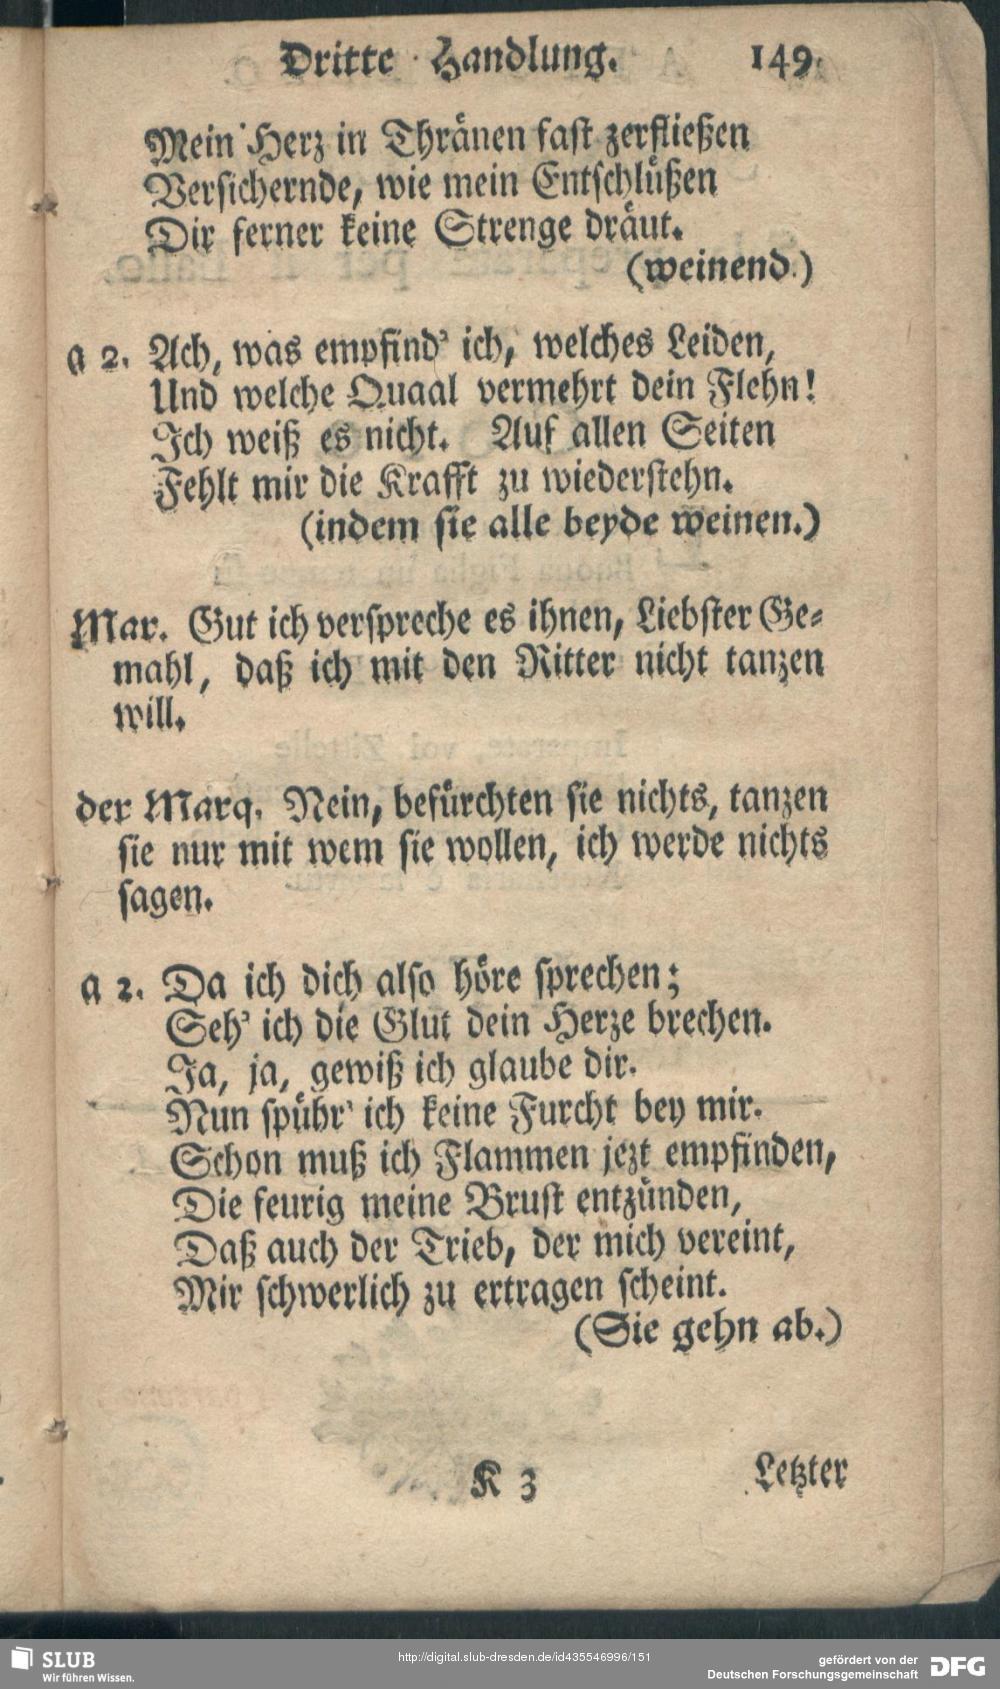 Dritte Handlung. 149.
Mein Herz in Thränen fast zerfließen
Versichernde, wie mein Entschlüßen
Dir ferner keine Strenge dräut.
(weinend.)
a 2. Ach, was empfind' ich, welches Leiden,
Und welche Quaal vermehrt dein Flehn!
Ich weiß es nicht. Auf allen Seiten
Fehlt mir die Krafft zu wiederstehn.
(indem sie alle beyde weinen.)
Mar. Gut ich verspreche es ihnen, Liebster Ge-
mahl, daß ich mit den Ritter nicht tanzen
will.
der Marq. Nein, befürchten sie nichts, tanzen
sie nur mit wem sie wollen, ich werde nichts
sagen.
a 2. Da ich dich also höre sprechen;
Seh' ich die Glut dein Herze brechen.
Ja, ja, gewiß ich glaube dir.
Nun spühr' ich keine Furcht bey mir.
Schon muß ich Flammen jezt empfinden,
Die feurig meine Brust entzünden,
Daß auch der Trieb, der mich vereint,
Mir schwerlich zu ertragen scheint.
(Sie gehn ab.)
K 3 Letzter
SLUB
Wir führen Wissen.
http://digital.slub-dresden.de/id435546996/151
gefördert von der
Deutschen Forschungsgemeinschaft
DFG